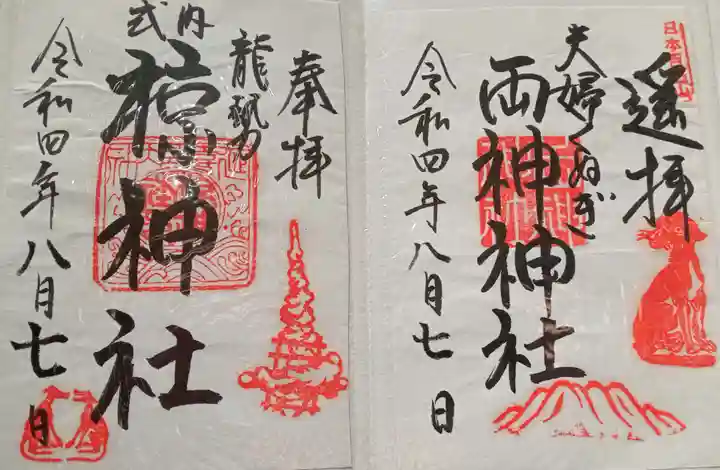 日本百名山
遥拝
夫婦くぬぎ
両神神社
令和四年八月七日
奉拝
龍勢
式内
椋神社
令和四年八月七日